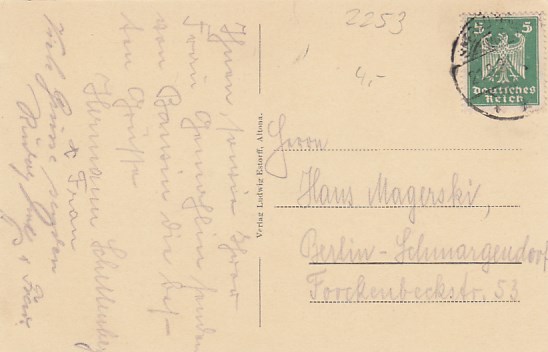 2253
4,-
5 5
Deutsches
Reich
Ihnen, sowie Ihrer
Frau Gemahlin senden
von Bansin die bes-
ten Grüsse
Hermann
x Frau
Viele Grüsse
Frau.
Verlag Ludwig Estorff, Altona.
Herrn
Hans Magerski,
Berlin-Schmargendorf
Forckenbeckstr. 53